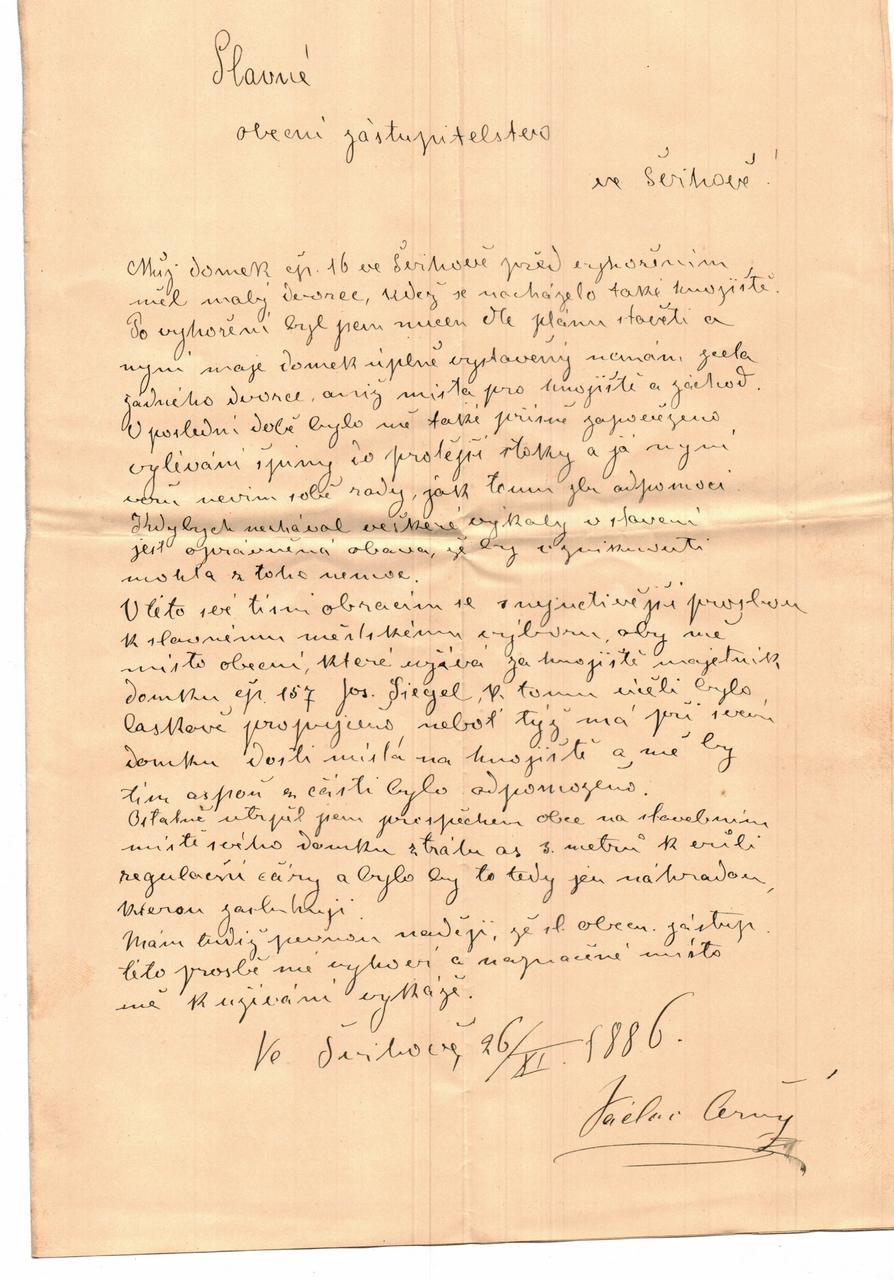 Slavné
obecní zástupitelstvo
ve Švihově!
Můj domek čp. 16 ve Švihově před vyhořením,
měl malý dvorec, kdež se nacházelo také hnojiště.
Po vyhoření byl jsem nucen dle plánu stavěti a
nyní maje domek úplně vystavěný nemám zcela
žádného dvorce, aniž místa pro hnojiště a záchod.
V poslední době bylo mě také přísně zapovězeno
vylévání špíny do protější stoky a já nyní
věru nevím sobě rady, jak tomu zlu odpomoci.
Kdybych nechával veškeré výkaly v stavení
jest oprávněná obava, že by vzniknouti
mohla z toho nemoc.
V této své tísni obracím se s nejuctivější prosbou
k slavnému městskému výboru, aby mě
místo obecní, které užívá za hnojiště majetník
domku čp. 157 Jos. Siegel, k tomu účeli bylo
laskavě propůjčeno, neboť týž má při svém
domku dosti místa na hnojiště a mě by
tím aspoň z části bylo odpomoženo.
Ostatně utrpěl jsem prospěchem obce na stavebním
místě svého domku ztrátu as 3. metrů k vůli
regulační čáry a bylo by to tedy jen náhradou,
kterou zasluhuji.
Mám tudíž pevnou naději, že sl. obecn. zástup.
této prosbě mé vyhoví a naznačené místo
mě k užívání vykáže.
Ve Švihově, 26/XI. 1886.
Václav Černý